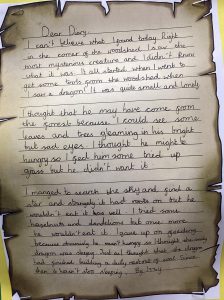 Dear Diary,
I can't believe what I found today. Right
in the corner of the woodshed I saw the
most mysterious creature and I didn't know
what it was. It all started when I went to
get some tools from the woodshed when
I saw a dragon! It was quite small and lonely.
I thought that he may have come from
the forest because I could see some
leaves and trees gleaming in his bright
but sad eyes. I thought he might be
hungry so I feed him some dried up
grass but he didn't want it.
I manged to search the sky and find a
star and strangely it had roots on but he
wouldn't eat it as well. I tried some
hazelnuts and dandelions but once more
he wouldn't eat it. I gave up on guessing
because obviously he wasn't hungry so I thought the
dragon was sleepy. And I thought that the dragon
had finished building a nest of
then it hasn't stop sleeping. By Issy.